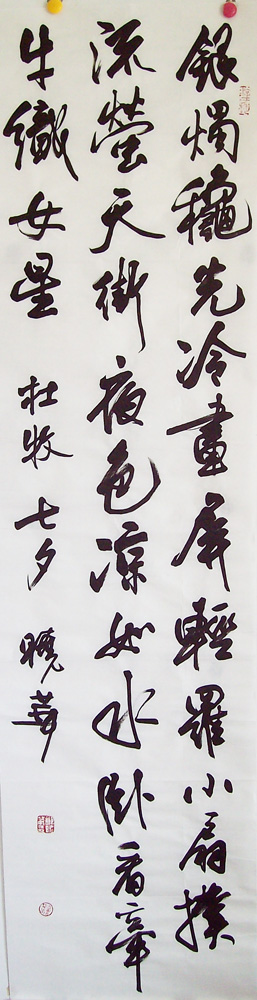 銀燭龝光冷畫屏輕羅小扇撲
流螢天街夜色涼如水卧看牽
牛織女星 杜牧 七夕 曉華